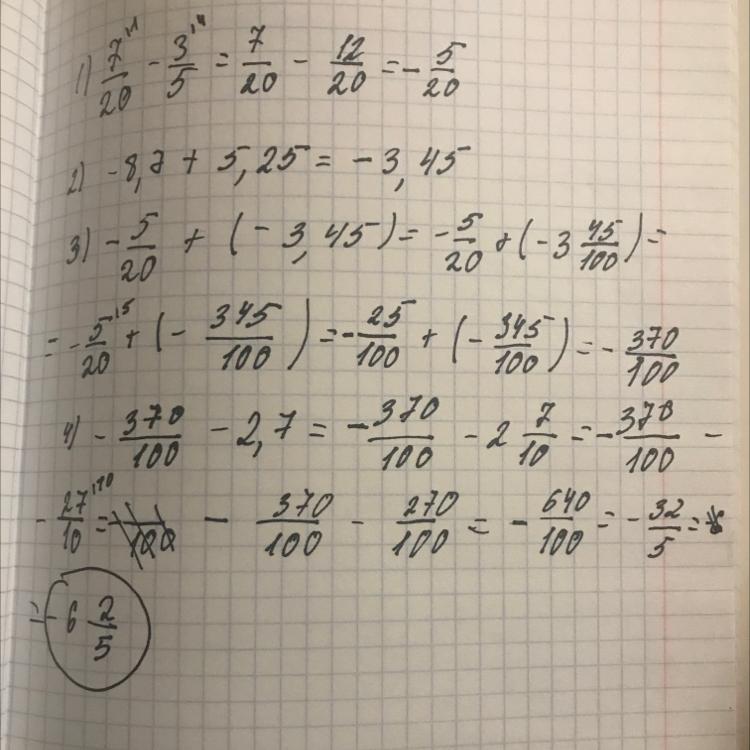 1) 7/20 ¹¹ - 3/5 ¹⁴ = 7/20 - 12/20 = - 5/20
2) -8,7 + 5,25 = -3,45
3) - 5/20 + (-3,45) = - 5/20 + (-3 45/100) =
= - 5/20 ¹⁵ + (- 345/100) = - 25/100 + (- 345/100) = - 370/100
4) - 370/100 - 2,7 = - 370/100 - 2 7/10 = - 370/100 -
- 27/10 ¹¹⁰ = - 370/100 - 270/100 = - 640/100 = - 32/5 =
= - 6 2/5